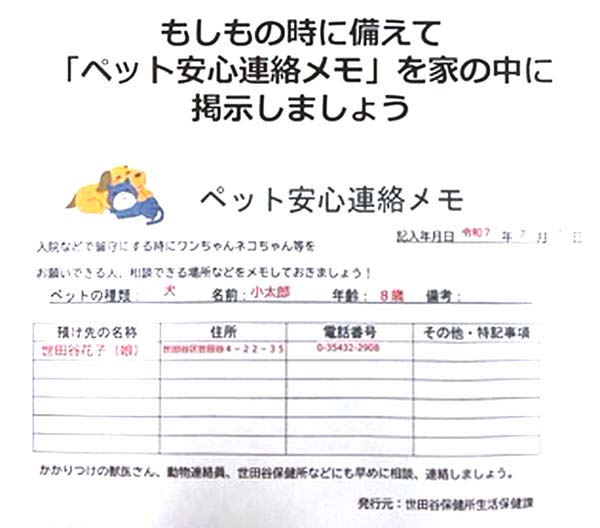 もしもの時に備えて
「ペット安心連絡メモ」を家の中に
掲示しましょう
ペット安心連絡メモ
記入年月日 令和7 年 7 月 日
入院などで留守にする時にワンちゃんネコちゃん等を
お願いできる人、相談できる場所などをメモしておきましょう！
ペットの種類： 犬 名前：小太郎 年齢： 8歳 備考：
預け先の名称 住所 電話番号 その他・特記事項
世田谷花子（娘） 世田谷区世田谷4－22－35 0-35432-2908
かかりつけの獣医さん、動物連絡員、世田谷保健所などにも早めに相談、連絡しましょう。
発行元：世田谷保健所生活保健課